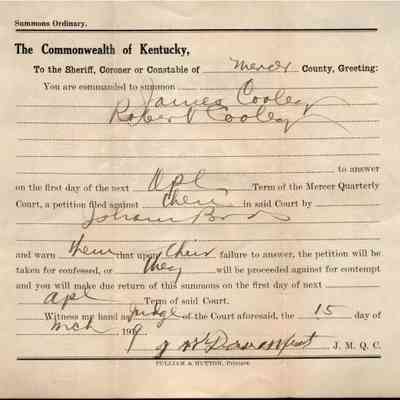 Summons Ordinary.
The Commonwealth of Kentucky,
To the Sheriff, Coroner or Constable of Mercer County, Greeting:
You are commanded to summon
James Cooley
Robert Cooley
to answer
on the first day of the next Apl Term of the Mercer Quarterly
Court, a petition filed against them in said Court by
and warn them that upon their failure to answer, the petition will be
taken for confessed, or they will be proceeded against for contempt
and you will make due return of this summons on the first day of next
Apl Term of said Court.
Witness my hand as Judge of the Court aforesaid, the 15 day of
Mch 1919
Davenport J. M. Q. C.
PULLIAM & HUTTON, Printers.